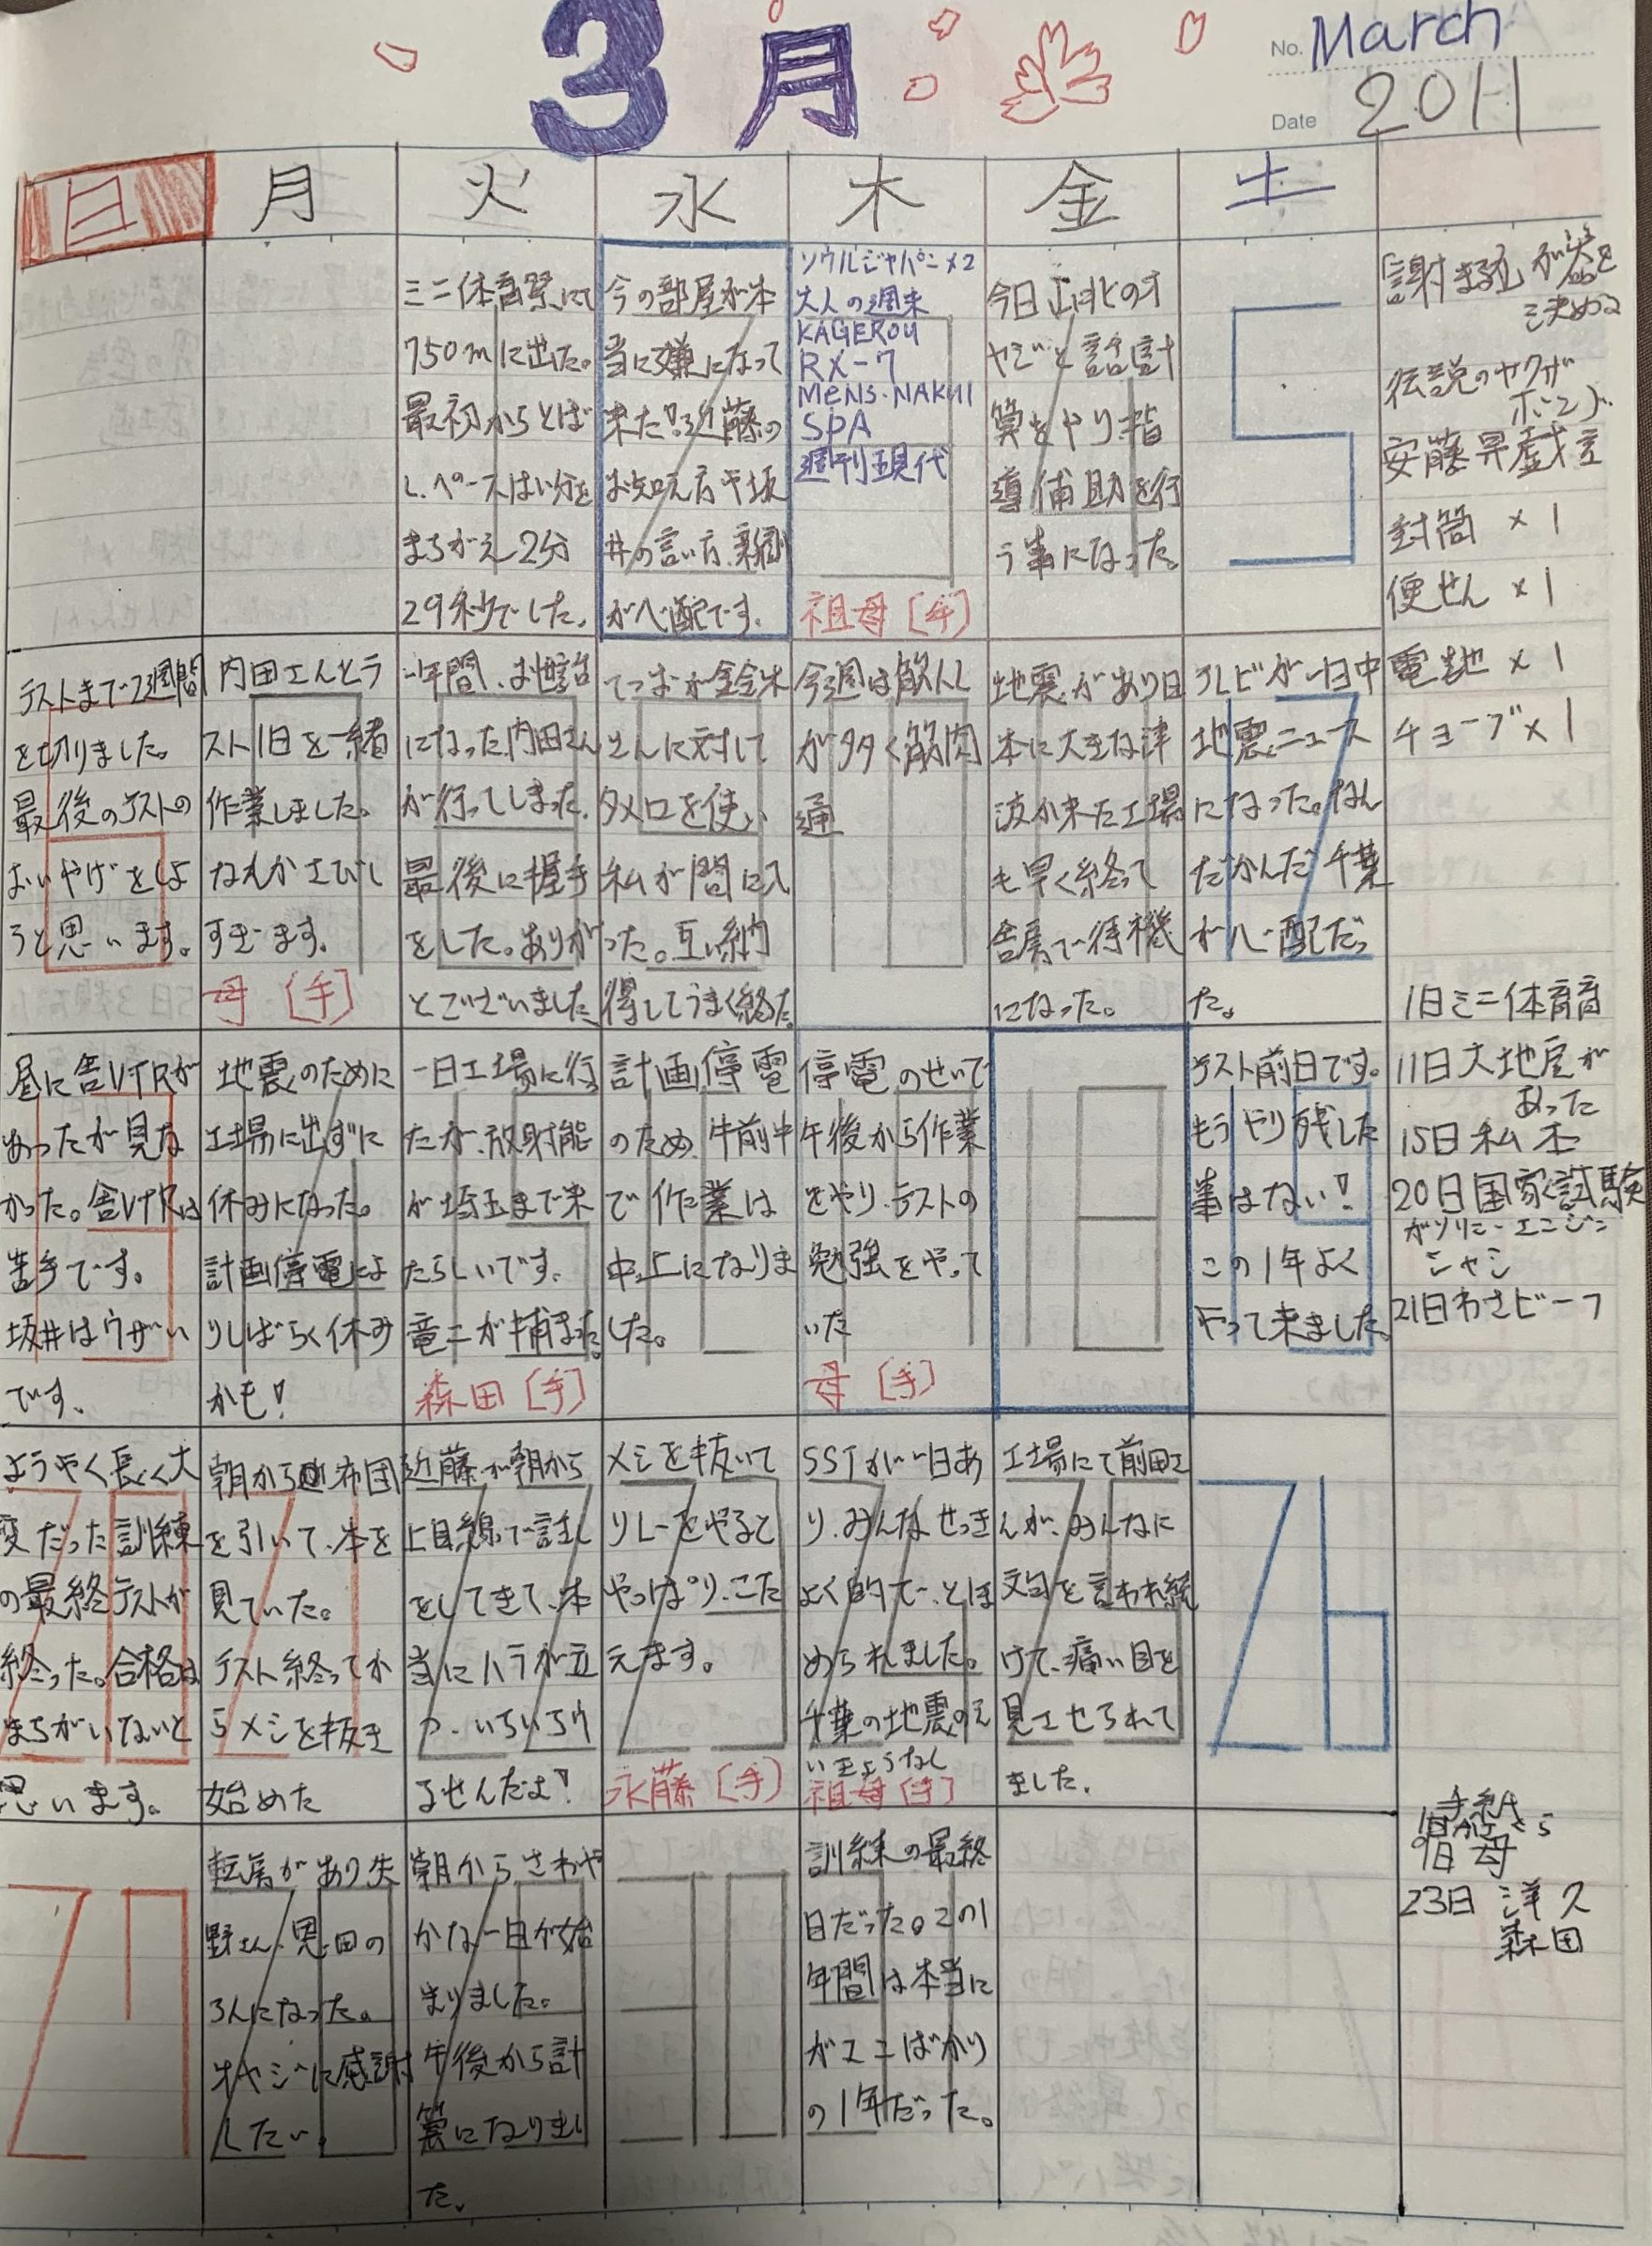 3月
No. March
Date 2011
日 月 火 水 木 金 土
ミニ体育祭にて
750mに出た。
最初からとば
し、ペースはい分を
まちがえ2分
29秒でした。
今の部屋が本
当に嫌になって
来た!近藤の
お知え方や坂
井の言い方、新聞
が心配です。
ソウルジャパン×2
大人の週末
KAGEROU
RX-7
MENS.NAKUI
SPA
週刊現代
祖母〔手〕
今日は北のオ
ヤジと話計
算をやり、指
導補助を行
う事になった。
5
「謝まるが
を決める
伝説のヤクザ
ボンド
安藤昇戯言
封筒 ×1
便せん ×1
テストまで2週間
を切りました。
最後のテストの
おいやげをしよ
うと思います。
内田さんとラ
スト1日を一緒
作業しました。
なんかさびし
すぎます。
母〔手〕
一年間、お世話
になった内田さん
が行ってしまった、
最後に握手
をした。ありが
とございました
てつおが鈴木
さんに対して
タメ口を使い
私が間に入
った。互い納
得してうまく終た。
今週は願入し
が多く筋肉
通
10
地震があり日
本に大きな津
波が来た工場
も早く終って
舎房で待機
になった。
テレビが一日中
地震ニュース
になった。なん
だかんだ千葉
が心配だっ
た。
電池 ×1
チューブ×1
1日ミニ体育音
昼に舎VTRが
あったが見な
かった。舎VTRは
苦手です。
坂井はウザい
です。
地震のために
工場に出ずに
休みになった。
計画停電によ
りしばらく休み
かも!
一日工場に行
たが、放射能
が埼玉まで来
たらしいです。
竜二が捕まった。
森田〔手〕
計画停電
のため、午前中
で作業は
中止になりま
した。
停電のせいで
午後から作業
をやり、テストの
勉強をやって
いた
母〔手〕
18
テスト前日です。
もうやり残した
事はない!
この1年よく
やって来ました。
19
11日大地震が
あった
15日私本
20日国家試験
ガソリン・エンジン
シャシ
21日わさビーフ
ようやく長く大
変だった訓練
の最終テストが
終った。合格は
まちがいないと
思います。
朝から布団
を引いて、本を
見ていた。
テスト終ってか
らメシを抜き
始めた
近藤が朝から
上目線で話し
をしてきて、本
当にハラが立
つ、いちいちう
るせんだよ!
メシを抜いて
リレーをやると
やっぱり、こた
えます。
永藤〔手〕
SSTがい一日あ
り、みんなせっき
よく的で、とほ
められました。
千葉の地震のえ
いきょうなし
祖母〔手〕
工場にて前田さ
んが、みんなに
文句を言われ続
けて、痛い目を
見させられて
ました。
26
27
転房があり矢
野さん、恩田の
3人になった。
オヤジに感謝
したい。
朝からさわや
かな一日が始
まりました。
午後から計
算になりまし
た。
30
訓練の最終
日だった。この1
年間は本当に
がマンばかり
の1年だった。
手紙
9日 母
23日 洋久
森田